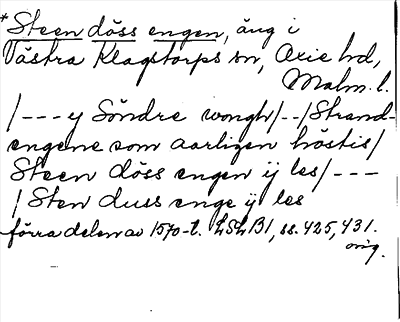 *Steen döss engen, äng i
Västra Klagstorps sn, Oxie hd,
Malm. l.
/--- ej Söndre wongh/--/Strand-
engene som aarligen höstis/
Steen döss engen ij les/---
/Sten duss enge ij les
förra delen av 1570-t. LSLB1, ss. 425, 431.
orig.